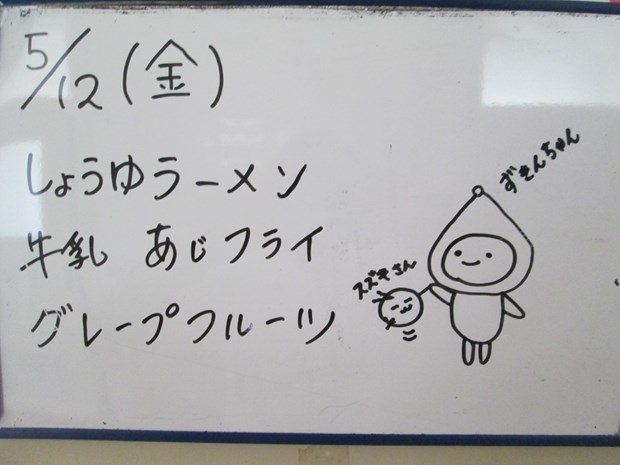 5/12(金)
しょうゆラーメン
牛乳 あじフライ
グレープフルーツ
ずきんちゃん
スズキさん